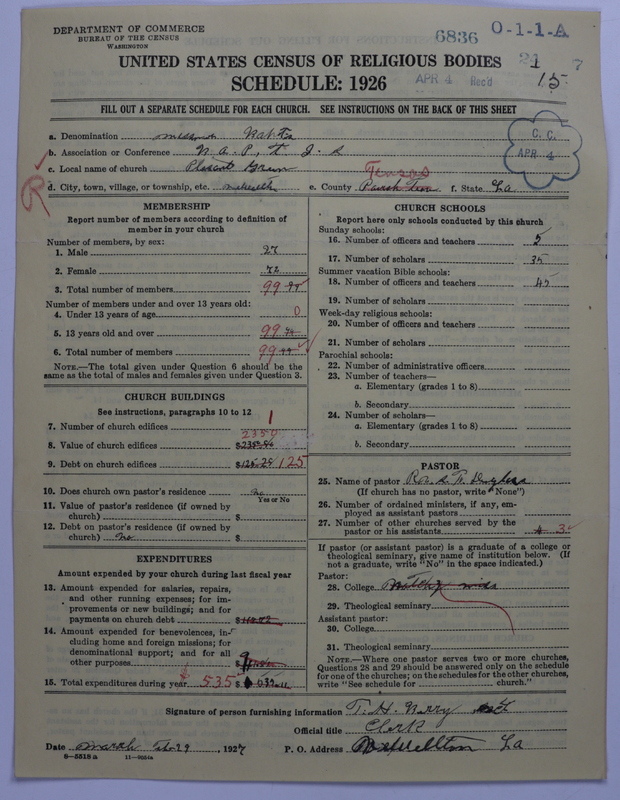 DEPARTMENT OF COMMERCE
BUREAU OF THE CENSUS
WASHINGTON
6836 O-1-1-A
UNITED STATES CENSUS OF RELIGIOUS BODIES
SCHEDULE: 1926
APR 4 Rec'd
15
FILL OUT A SEPARATE SCHEDULE FOR EACH CHURCH. SEE INSTRUCTIONS ON THE BACK OF THIS SHEET
C. C.
APR 4
a. Denomination
b. Association or Conference
c. Local name of church
Tensas
d. City, town, village, or township, etc. e. County Parish f. State La
R
MEMBERSHIP
Report number of members according to definition of
member in your church
Number of members, by sex:
1. Male 27
2. Female 72
3. Total number of members 99
Number of members under and over 13 years old:
4. Under 13 years of age 0
5. 13 years old and over 99
6. Total number of members 99
NOTE.—The total given under Question 6 should be the
same as the total of males and females given under Question 3.
CHURCH BUILDINGS
See instructions, paragraphs 10 to 12
7. Number of church edifices 1
8. Value of church edifices $
9. Debt on church edifices $ 125
10. Does church own pastor's residence no
Yes or No
11. Value of pastor's residence (if owned by
church) $
12. Debt on pastor's residence (if owned by
church) no $
EXPENDITURES
Amount expended by your church during last fiscal year
13. Amount expended for salaries, repairs,
and other running expenses; for im-
provements or new buildings; and for
payments on church debt $
14. Amount expended for benevolences, in-
cluding home and foreign missions; for
denominational support; and for all
other purposes $
15. Total expenditures during year $ 535 $
CHURCH SCHOOLS
Report here only schools conducted by this church
Sunday schools:
16. Number of officers and teachers 5
17. Number of scholars 35
Summer vacation Bible schools:
18. Number of officers and teachers 45
19. Number of scholars
Week-day religious schools:
20. Number of officers and teachers
21. Number of scholars
Parochial schools:
22. Number of administrative officers
23. Number of teachers—
a. Elementary (grades 1 to 8)
b. Secondary
24. Number of scholars—
a. Elementary (grades 1 to 8)
b. Secondary
PASTOR
25. Name of pastor
(If church has no pastor, write "None")
26. Number of ordained ministers, if any, em-
ployed as assistant pastors
27. Number of other churches served by the
pastor or his assistants 3
If pastor (or assistant pastor) is a graduate of a college or
theological seminary, give name of institution below. (If
not a graduate, write "No" in the space indicated.)
Pastor:
28. College miss
29. Theological seminary
Assistant pastor:
30. College
31. Theological seminary
NOTE.—Where one pastor serves two or more churches,
Questions 28 and 29 should be answered only on the schedule
for one of the churches; on the schedules for the other churches,
write "See schedule for church."
Signature of person furnishing information T. H.
Official title Clerk
Date march 29, 1927 P. O. Address La
8-5518 a 11-9254a